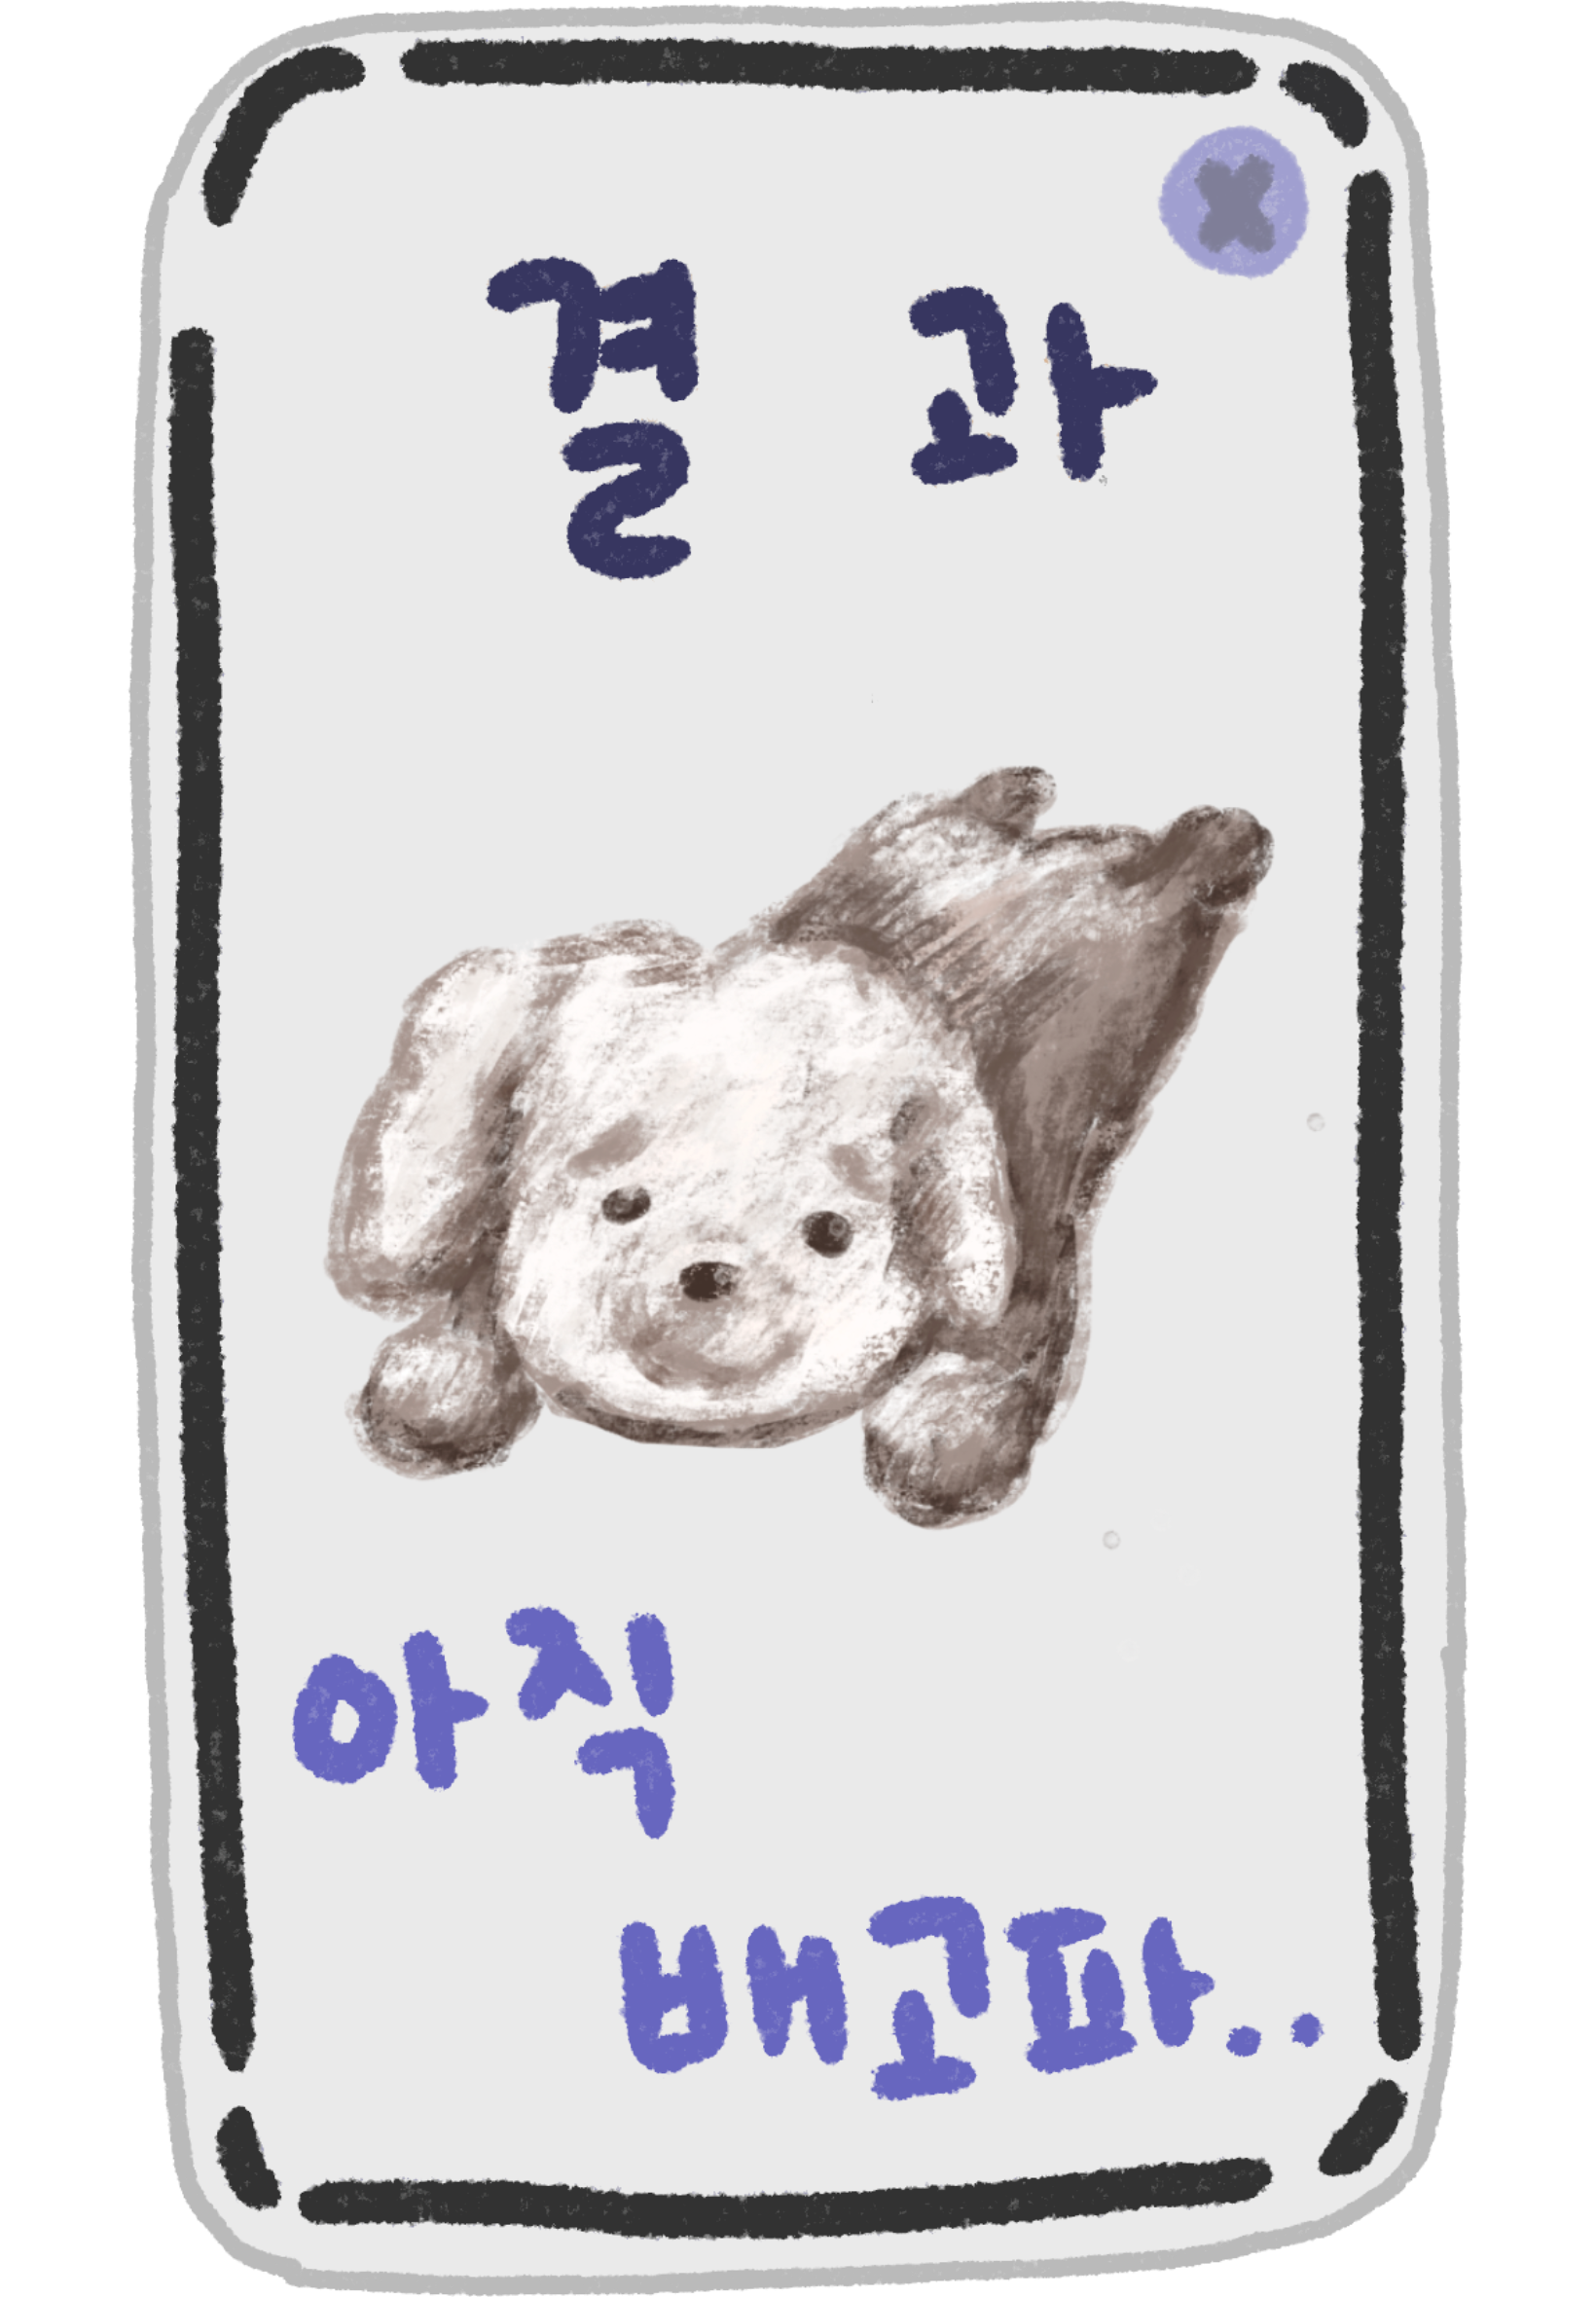 결과
아직
배고파..